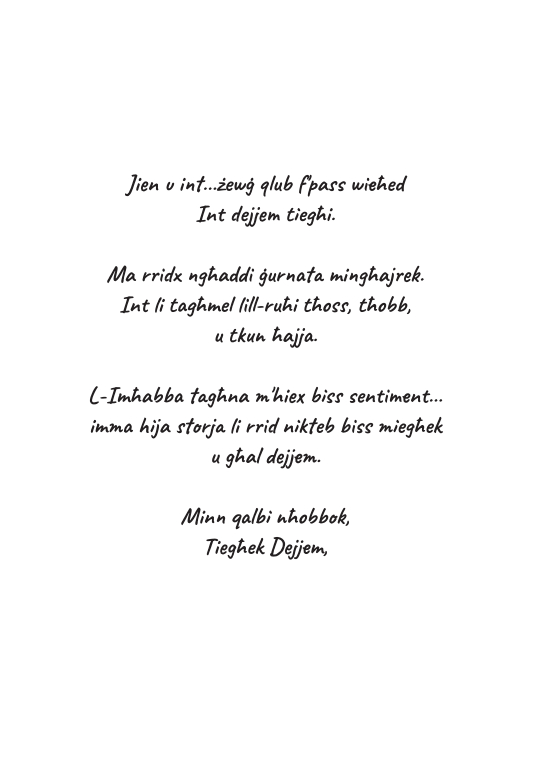 Jien u int...żewġ qlub f'pass wieħed
Int dejjem tiegħi.
Ma rridx ngħaddi ġurnata mingħajrek.
Int li tagħmel lill-ruħi tħoss, tħobb,
u tkun ħajja.
L-Imħabba tagħna m'hiex biss sentiment...
imma hija storja li rrid nikteb biss miegħek
u għal dejjem.
Minn qalbi nħobbok,
Tiegħek Dejjem,